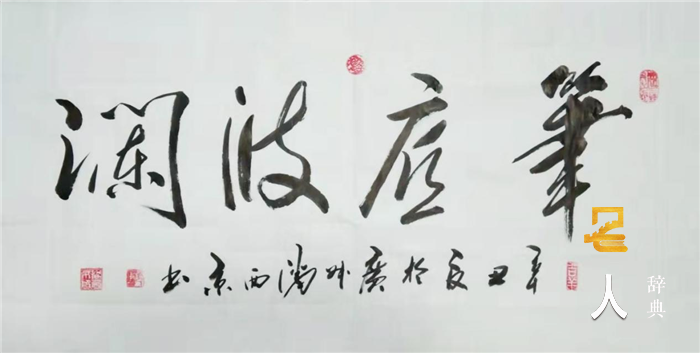 筆底波瀾
辛丑夏於廣州西京书
名人
辞典